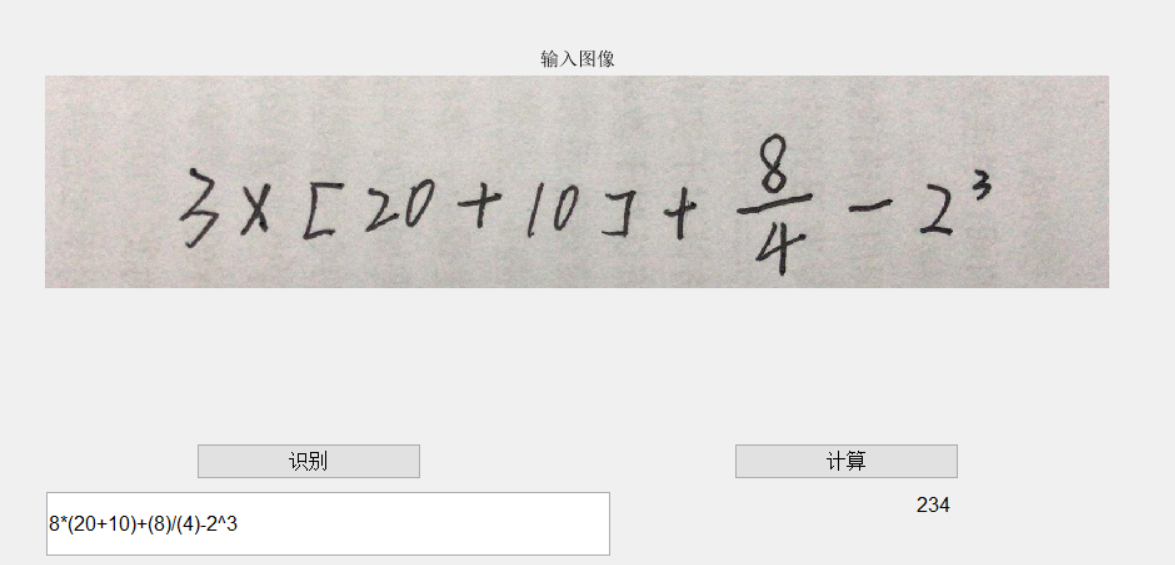 输入图像
3 × [20 + 10] + \frac{8}{4} - 2^3
识别
计算
8*(20+10)+(8)/(4)-2^3
234